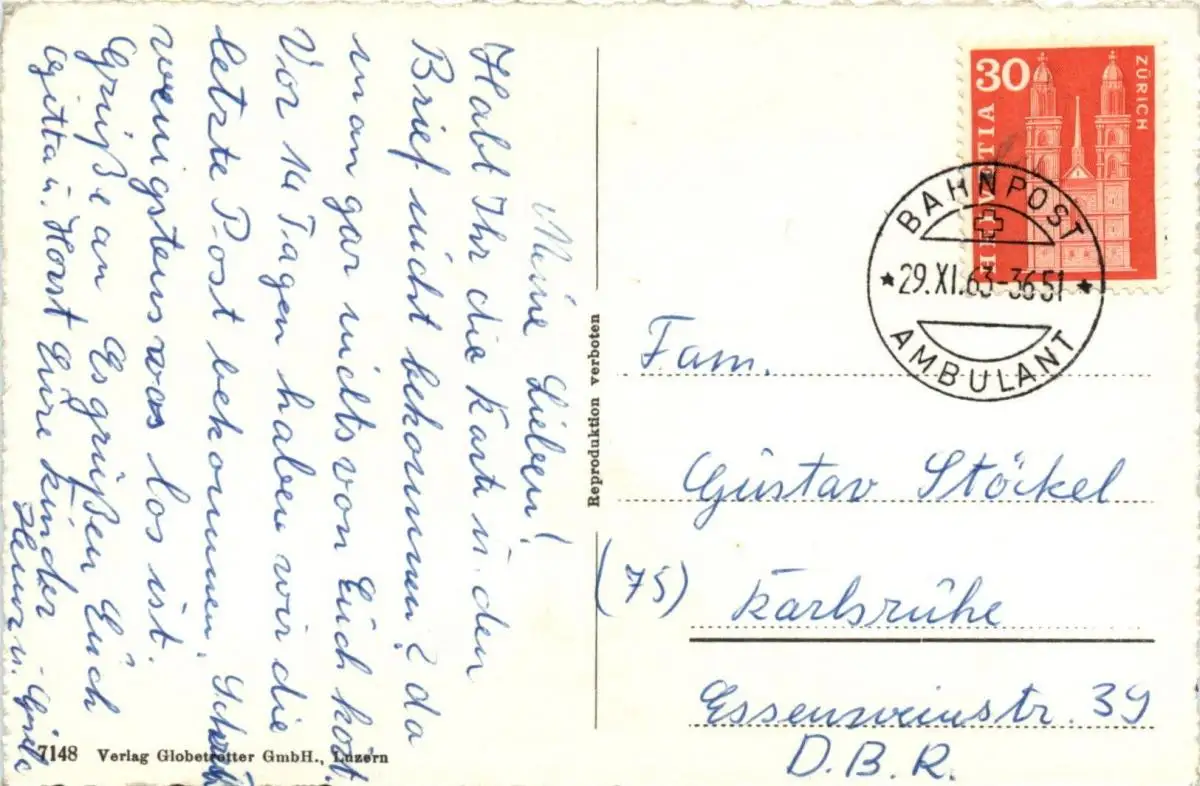 Meine Lieben!
Habt Ihr die Karte u. den
Brief nicht bekommen? da
man gar nichts von Euch hört.
Vor 14 Tagen haben wir die
letzte Post bekommen. Schreibt
wenigstens was los ist.
Grüße an
Gitta u. Horst
Es grüßen Euch
Eure Kinder
Heinz u. Grete
7148 Verlag Globetrotter GmbH., Luzern
Reproduktion verboten
30
HELVETIA
ZÜRICH
BAHNPOST
29.XI.63-3651
AMBULANT
Fam.
Gustav Stöckel
(75) Karlsruhe
Essenweinstr. 39
D.B.R.